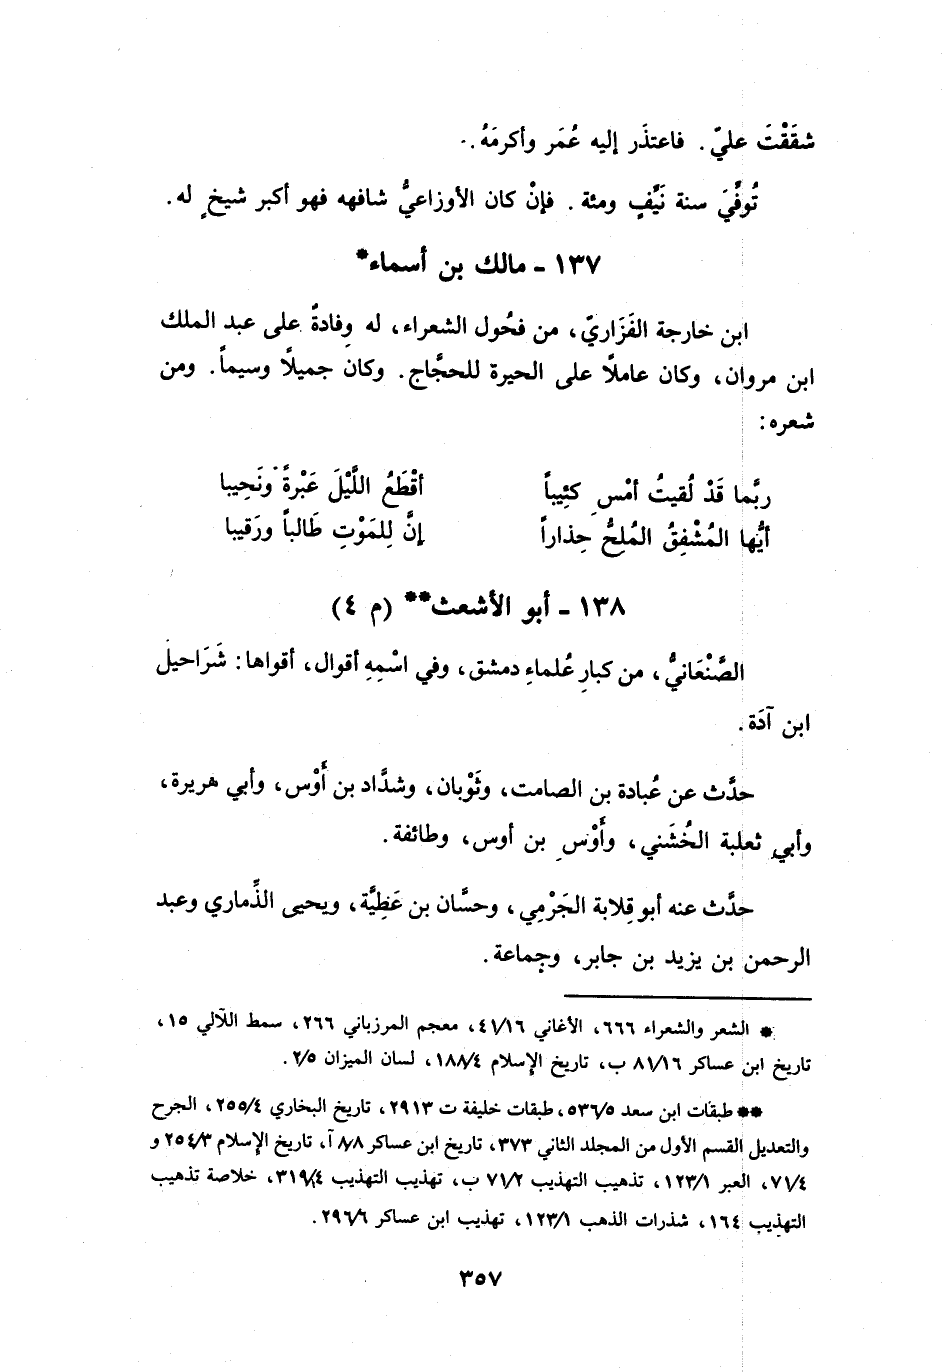 شقَقْتَ عليّ. فاعتذَر إليه عُمَر وأكرمَهُ.
تُوفِّيَ سنة نَيِّفٍ ومئة. فإنْ كان الأوزاعيُّ شافهه فهو أكبر شيخٍ له.
١٣٧ - مالك بن أسماء*
ابن خارجة الفَزَاريّ، من فحُول الشعراء، له وِفادةٌ على عبد الملك
ابن مروان، وكان عاملًا على الحيرة للحجَّاج. وكان جميلًا وسيماً. ومن
شعره:
ربَّما قَدْ لُقيتُ أمْسِ كئِيباً أقْطَعُ اللَّيْلَ عَبْرةً ونَحِيبا
أيُّها المُشْفِقُ المُلِحُّ حِذاراً إنَّ لِلمَوْتِ طَالباً ورَقيبا
١٣٨ - أبو الأشعث** (م ٤)
الصَّنْعَانيُّ، من كبارِ عُلماءِ دمشق، وفي اسْمِهِ أقوال، أقواها: شَرَاحيلُ
ابن آدَة.
حدَّث عن عُبادة بن الصامت، وثَوْبان، وشدَّاد بن أَوْس، وأبي هريرة،
وأبي ثعلبة الخُشَني، وأَوْسِ بن أوس، وطائفة.
حدَّث عنه أبو قِلابة الجَرْمِي، وحسَّان بن عَطِيَّة، ويحيى الذِّماري وعبد
الرحمن بن يزيد بن جابر، وجماعة.
* الشعر والشعراء ٦٦٦، الأغاني ٤١/١٦، معجم المرزباني ٢٦٦، سمط اللآلي ١٥،
تاريخ ابن عساكر ٨١/١٦ ب، تاريخ الإسلام ١٨٨/٤، لسان الميزان ٢/٥.
** طبقات ابن سعد ٥٣٦/٥، طبقات خليفة ت ٢٩١٣، تاريخ البخاري ٢٥٥/٤، الجرح
والتعديل القسم الأول من المجلد الثاني ٣٧٣، تاريخ ابن عساكر ٨/٨ آ، تاريخ الإسلام ٢٥٤/٣ و
٧١/٤، العبر ١٢٣/١، تذهيب التهذيب ٧١/٢ ب، تهذيب التهذيب ٣١٩/٤، خلاصة تذهيب
التهذيب ١٦٤، شذرات الذهب ١٢٣/١، تهذيب ابن عساكر ٢٩٦/٦.
٣٥٧